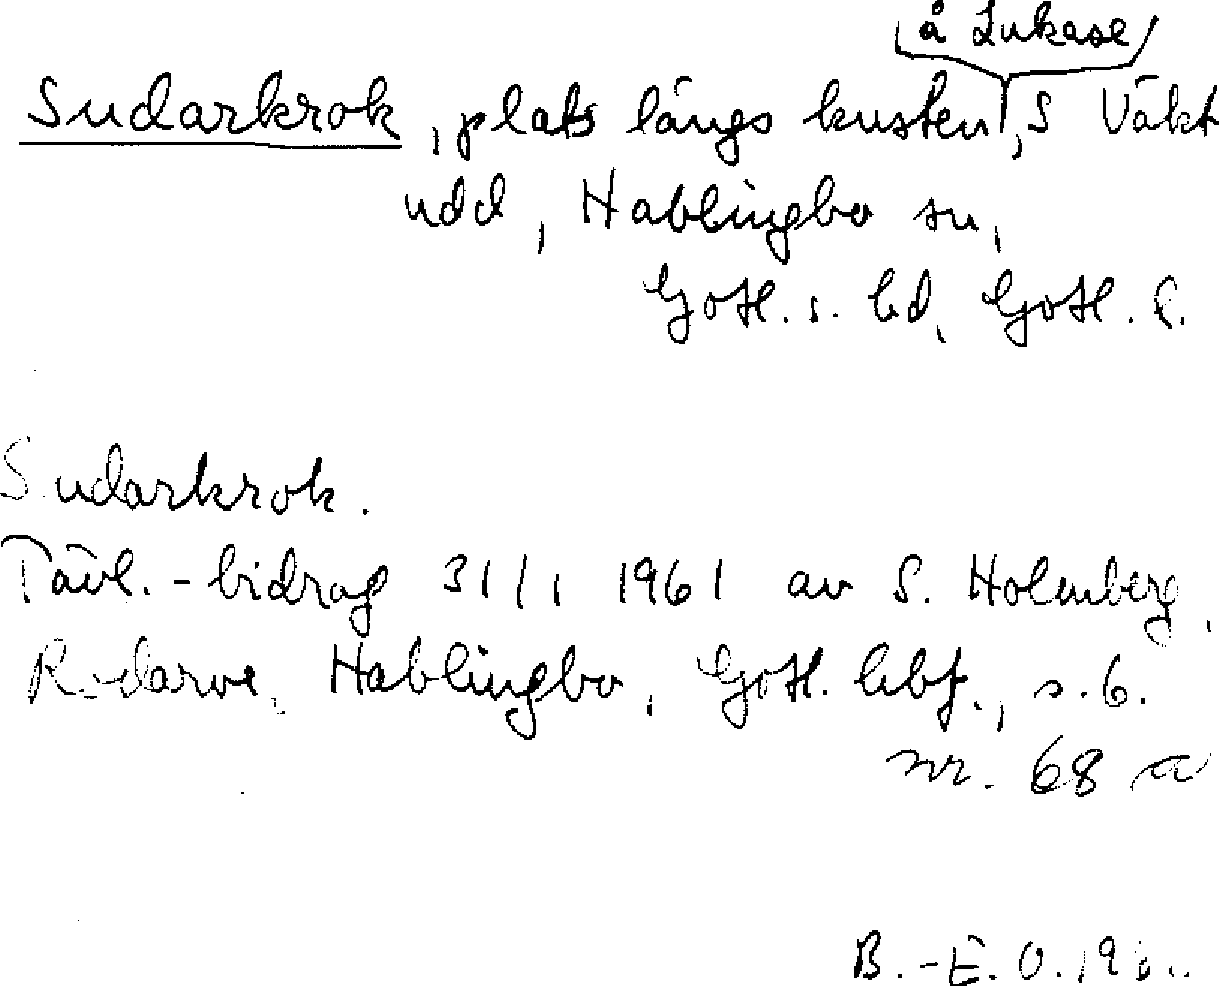 å Lukase
Sudarkrok, plats längs kusten, S Väkt
udd, Hablingbo sn,
Gotl. s. hd, Gotl. l.
Sudarkrok.
Tävl.-bidrag 31/1 1961 av S. Holmberg,
Rodarve, Hablingbo, Gotl. hbf., s. 6.
nr. 68 a
B.-E. O.